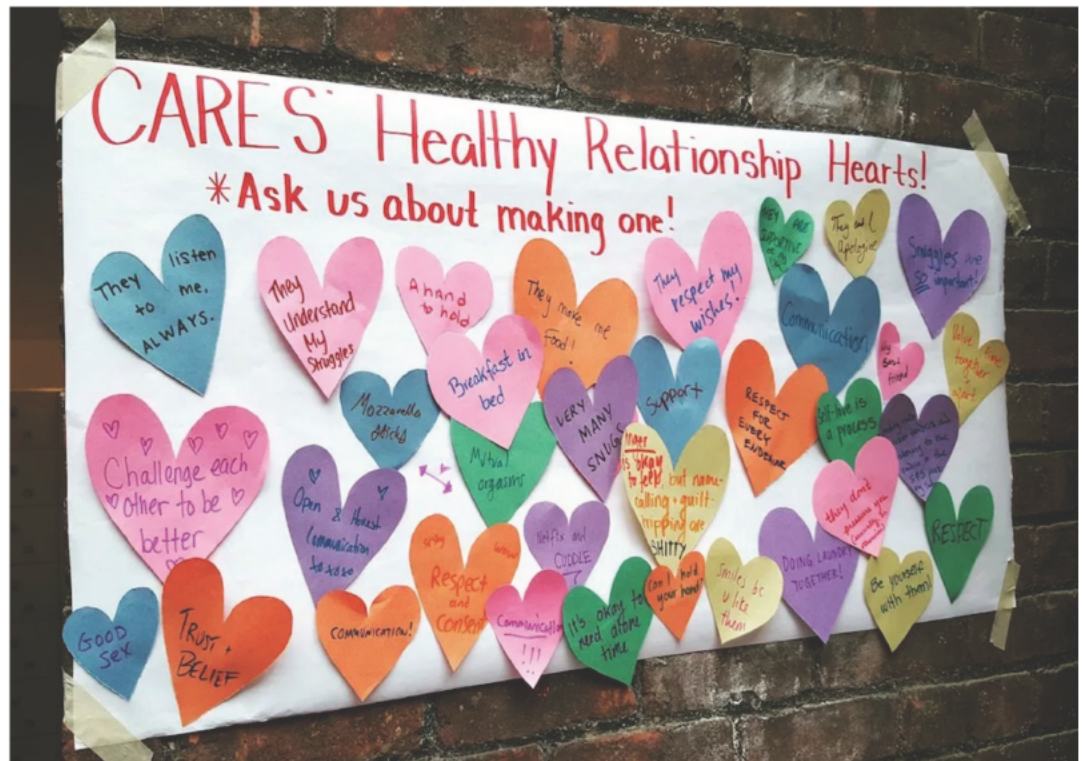 CARES' Healthy Relationship Hearts!
*Ask us about making one!
They listen
to me,
ALWAYS.
They
Understand
My
Struggles
A hand
to hold
They make me
Food!
They
respect my
wishes!
THEY ARE
SUPPORTIVE
They and I
Apologize
Snuggles are
so important!
Communication
My
Best
friend
Value time
together
+ apart
Mozzarella
Sticks
Breakfast in
bed
VERY
MANY
SNUGS
Support
RESPECT
FOR
EVERY
ENDEAVOR
Self-love is
a process
Challenge each
other to be
better
Open & Honest
Communication
xoxoxo
Mutual
orgasms
is okay
to feel, but name-
calling + guilt-
tripping are
SHITTY
they don't
pressure you
RESPECT
Respect
and
consent
Netflix and
CUDDLE
DOING LAUNDRY
TOGETHER!
Be yourself
with them!
GOOD
SEX
TRUST +
BELIEF
COMMUNICATION!
Communication
!!!
It's okay to
need alone
time
Can I hold
your hand?
Smiles bc
u like
them